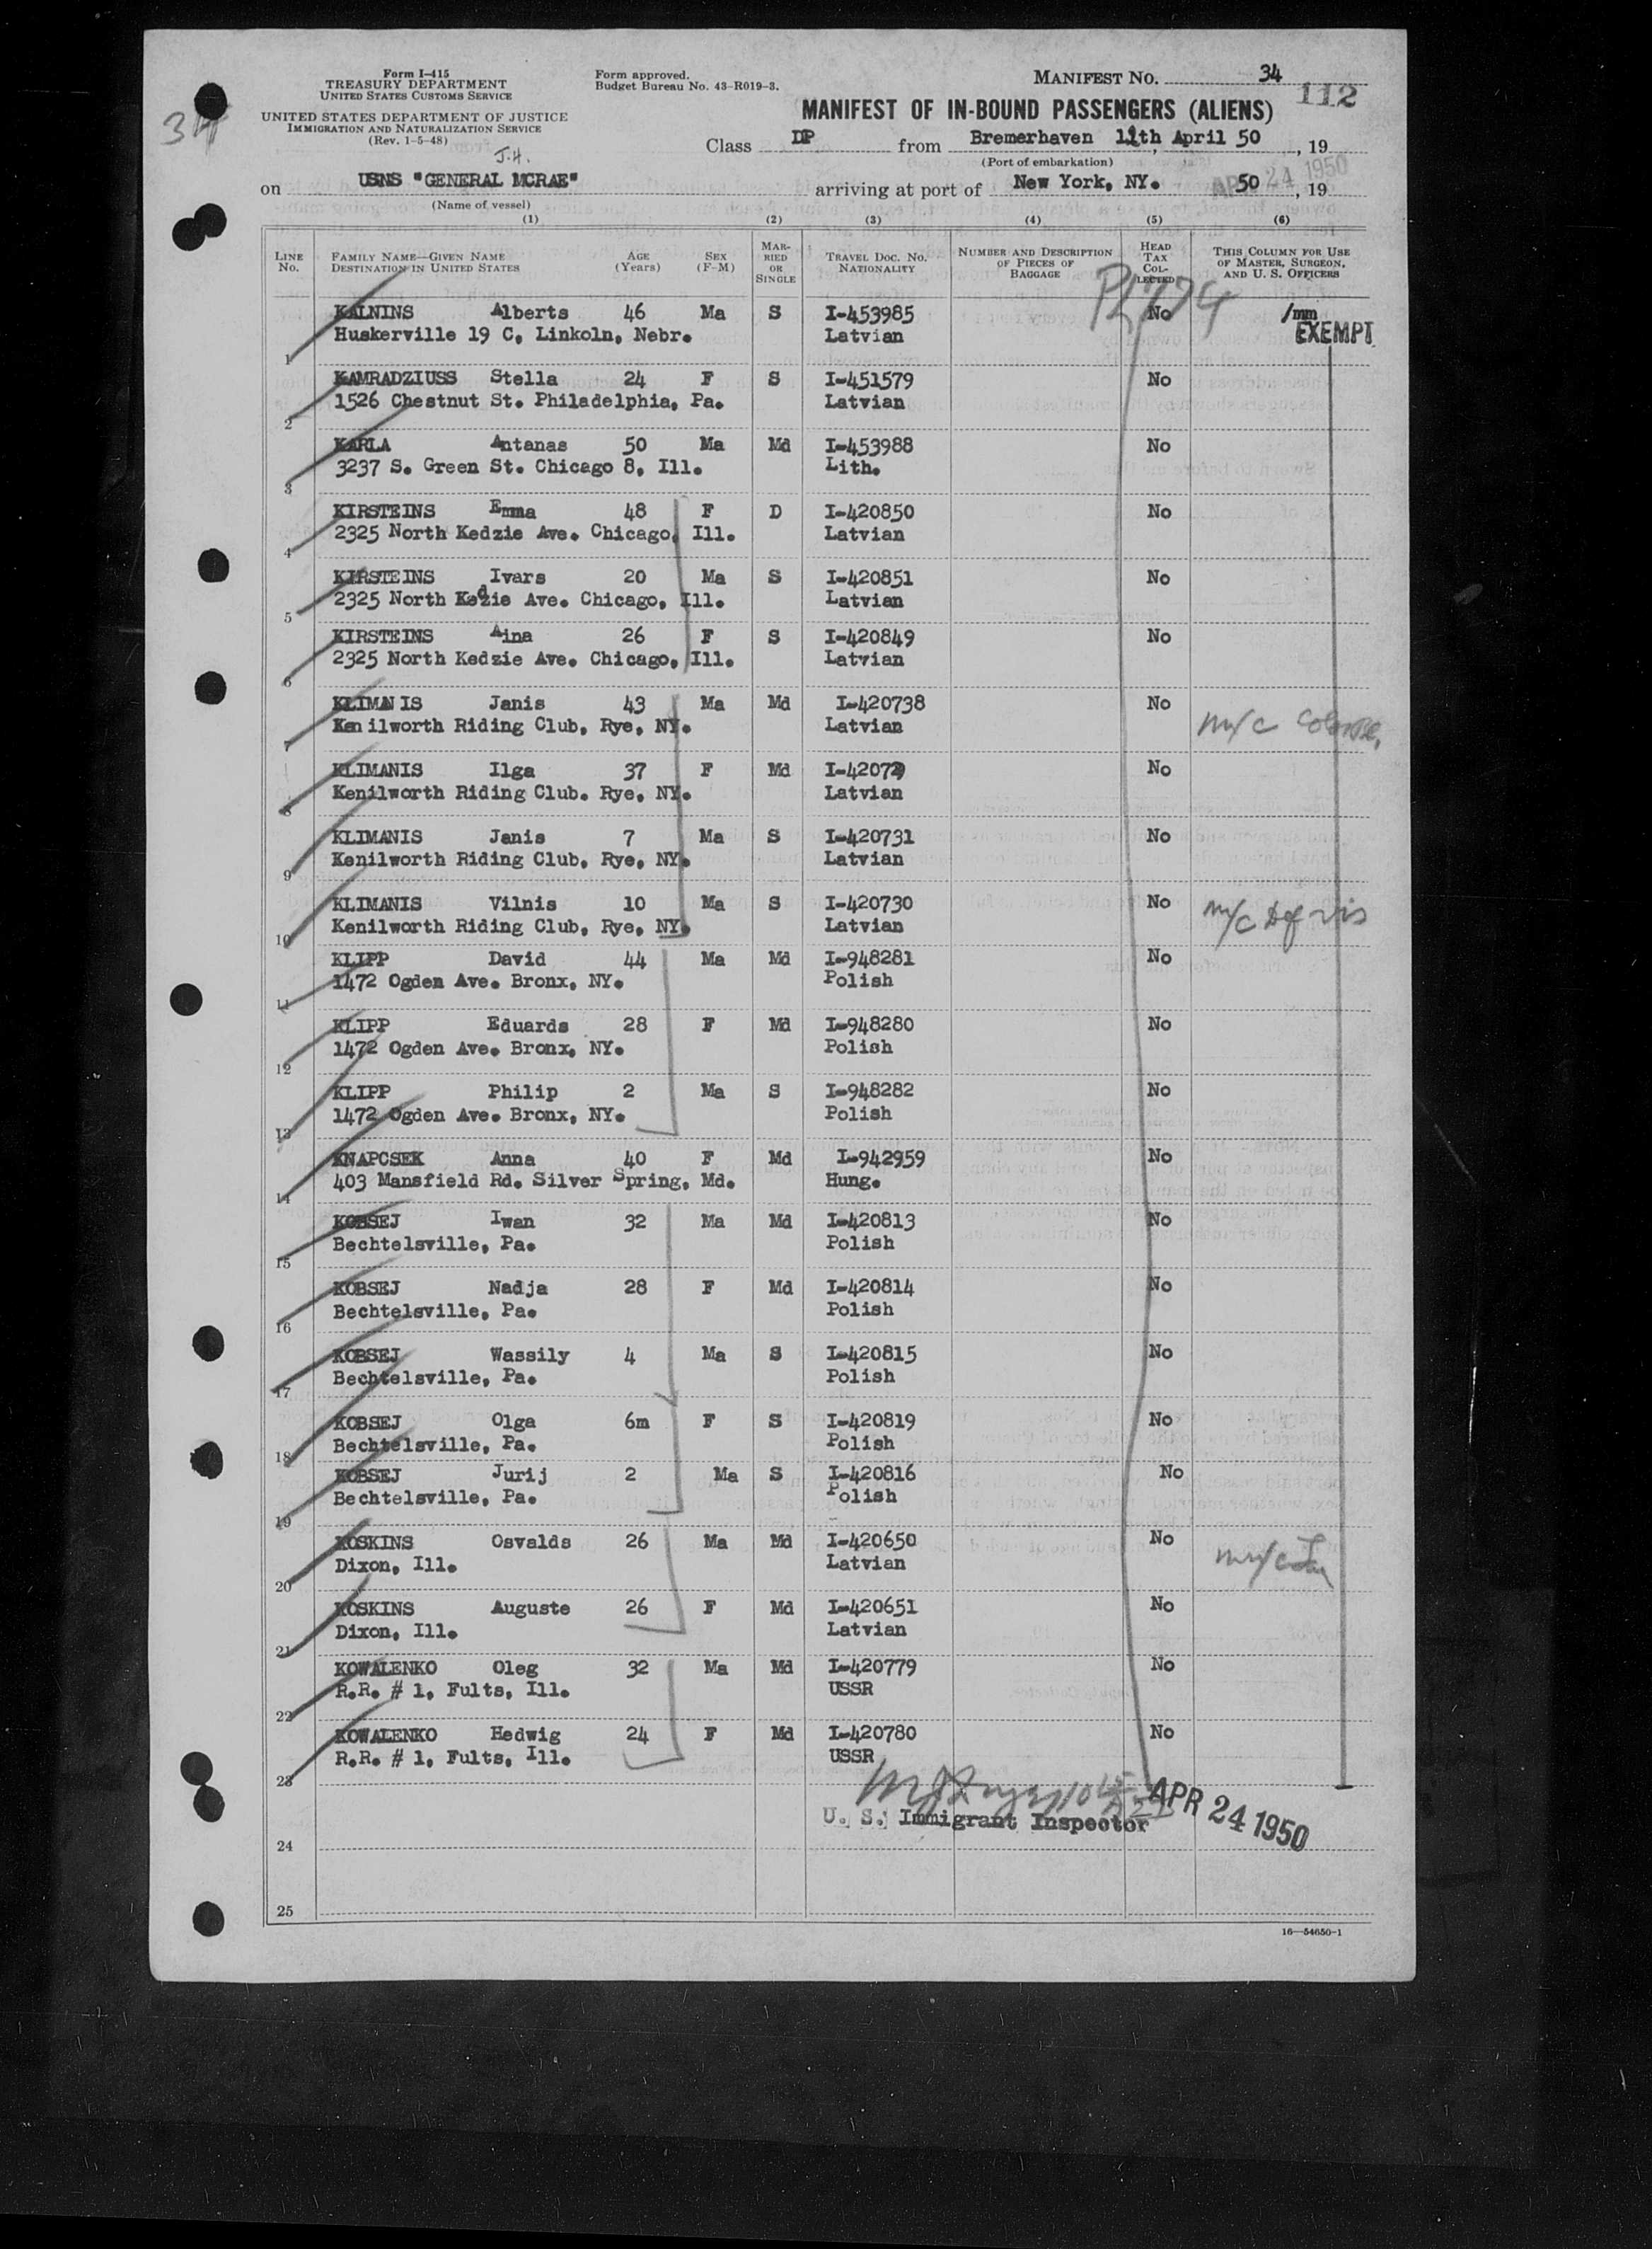 Form I-415
TREASURY DEPARTMENT
UNITED STATES CUSTOMS SERVICE
UNITED STATES DEPARTMENT OF JUSTICE
IMMIGRATION AND NATURALIZATION SERVICE
(Rev. 1-5-48)
J.H.
Form approved.
Budget Bureau No. 43-R019-3.
MANIFEST NO. 34
112
34
MANIFEST OF IN-BOUND PASSENGERS (ALIENS)
Class DP from Bremerhaven 11th April 50, 19
(Port of embarkation)
on USNS "GENERAL MCRAE" arriving at port of New York, NY. 50, 19
APR 24 1950
(Name of vessel)
(1) (2) (3) (4) (5) (6)
LINE No. FAMILY NAME—GIVEN NAME DESTINATION IN UNITED STATES AGE (Years) SEX (F-M) MARRIED OR SINGLE TRAVEL DOC. NO. NATIONALITY NUMBER AND DESCRIPTION OF PIECES OF BAGGAGE HEAD TAX COLLECTED THIS COLUMN FOR USE OF MASTER, SURGEON, AND U. S. OFFICERS
KALNINS Alberts 46 Ma S I-453985 No /mm
1 Huskerville 19 C, Linkoln, Nebr. Latvian EXEMPT
KAMRADZIUSS Stella 24 F S I-451579 No
2 1526 Chestnut St. Philadelphia, Pa. Latvian
KARLA Antanas 50 Ma Md I-453988 No
3 3237 S. Green St. Chicago 8, Ill. Lith.
KIRSTEINS Emma 48 F D I-420850 No
4 2325 North Kedzie Ave. Chicago, Ill. Latvian
KIRSTEINS Ivars 20 Ma S I-420851 No
5 2325 North Kedzie Ave. Chicago, Ill. Latvian
KIRSTEINS Aina 26 F S I-420849 No
6 2325 North Kedzie Ave. Chicago, Ill. Latvian
KLIMANIS Janis 43 Ma Md I-420738 No
7 Kenilworth Riding Club, Rye, NY. Latvian m/c
KLIMANIS Ilga 37 F Md No
8 Kenilworth Riding Club. Rye, NY. Latvian
KLIMANIS Janis 7 Ma S I-420731 No
9 Kenilworth Riding Club, Rye, NY. Latvian
KLIMANIS Vilnis 10 Ma S I-420730 No m/c Def vis
10 Kenilworth Riding Club, Rye, NY. Latvian
KLIPP David 44 Ma Md I-948281 No
11 1472 Ogden Ave. Bronx, NY. Polish
KLIPP Eduarda 28 F Md I-948280 No
12 1472 Ogden Ave. Bronx, NY. Polish
KLIPP Philip 2 Ma S I-948282 No
13 1472 Ogden Ave. Bronx, NY. Polish
KNAPCSEK Anna 40 F Md I-942959 No
14 403 Mansfield Rd. Silver Spring, Md. Hung.
KOBSEJ Iwan 32 Ma Md I-420813 No
15 Bechtelsville, Pa. Polish
KOBSEJ Nadja 28 F Md I-420814 No
16 Bechtelsville, Pa. Polish
KOBSEJ Wassily 4 Ma S I-420815 No
17 Bechtelsville, Pa. Polish
KOBSEJ Olga 6m F S I-420819 No
18 Bechtelsville, Pa. Polish
KOBSEJ Jurij 2 Ma S I-420816 No
19 Bechtelsville, Pa. Polish
KOSKINS Osvalds 26 Ma Md I-420650 No
20 Dixon, Ill. Latvian m/c
KOSKINS Auguste 26 F Md I-420651 No
21 Dixon, Ill. Latvian
KOWALENKO Oleg 32 Ma Md I-420779 No
22 R.R. # 1, Fults, Ill. USSR
KOWALENKO Hedwig 24 F Md I-420780 No
23 R.R. # 1, Fults, Ill. USSR
U. S. Immigrant Inspector APR 24 1950
24
25
16—54650-1